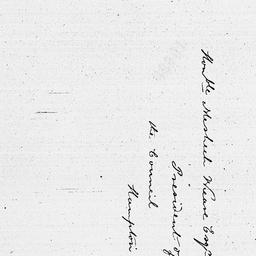 Honble Meshech Weare Esqr
President of
the Council
Hampton